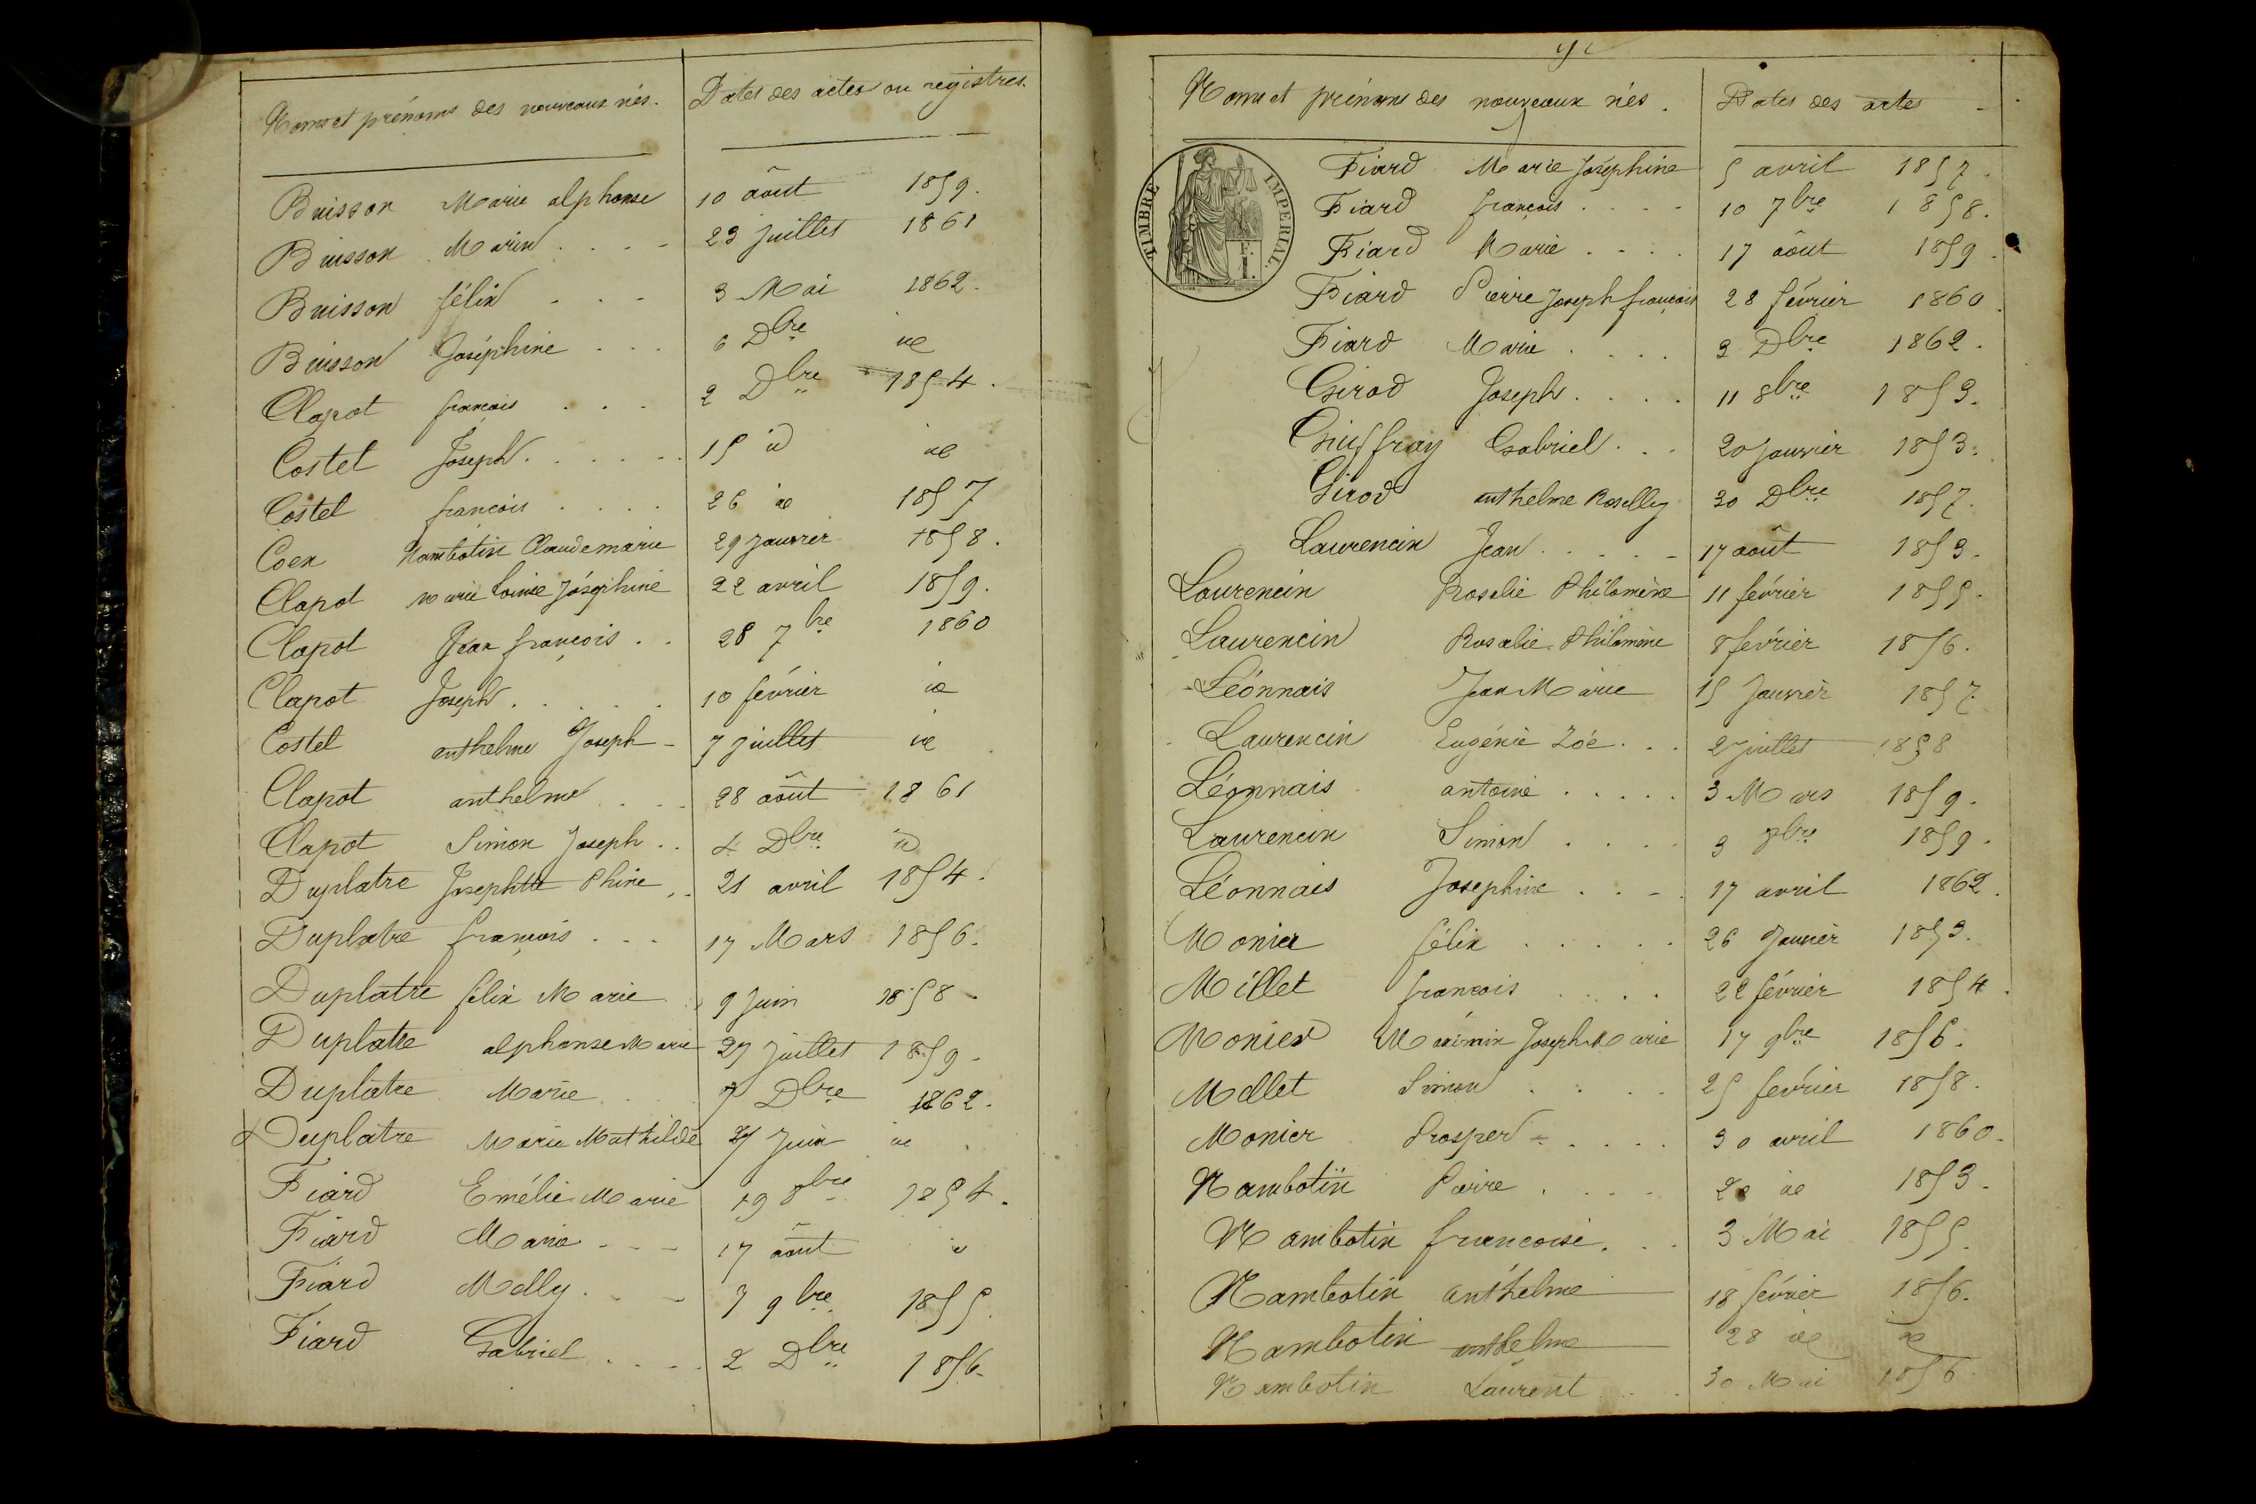 Noms et prénoms des nouveaux nés. Dates des actes ou registres.
Buisson Marie alphonse 10 août 1859.
Buisson Marin .... 23 juillet 1861
Buisson félix ... 3 Mai 1862.
Buisson Joséphine ... 6 Dbre id
Clapot françois ... 2 Dbre 1854.
Costel Joseph ...... 15 id id
Costel françois .... 26 id 1857
Coen Nambotin Claude marie 29 Janvier 1858.
Clapot marie Louise Joséphine 22 avril 1859.
Clapot Jean françois .. 28 7bre 1860
Clapot Joseph ..... 10 février id
Costel anthelme Joseph - 7 juillet id
Clapot anthelme ... 28 août 1861
Clapot Simon Joseph .. 4 Dbre id
Duplatre Phine .. 21 avril 1854.
Duplatre françois ... 17 Mars 1856.
Duplatre félix Marie . 9 Juin 1858.
Duplatre alphonse Marie 27 Juillet 1859.
Duplatre Marie .. 7 Dbre 1862.
Duplatre Marie Mathilde 27 Juin id
Fiard Emélie Marie 19 8bre 1854.
Fiard Marie --- 17 août id
Fiard Melly . - - 7 9bre 1855.
Fiard Gabriel .... 2 Dbre 1856.
Noms et prénoms des nouveaux nés. Dates des actes -
TIMBRE IMPERIAL.
E.
I.
Fiard Marie Joséphine 5 avril 1857.
Fiard françois .... 10 7bre 1858.
Fiard Marie .... 17 août 1859.
Fiard Pierre Joseph françois 28 février 1860.
Fiard Marie .... 3 Dbre 1862.
Girod Joseph .... 11 8bre 1853.
Guiffray Gabriel ... 20 Janvier 1853.
Girod anthelme Roselly 30 Dbre 1857.
Laurencin Jean ..... 17 août 1853.
Laurencin Rosalie Philomène 11 février 1855.
Laurencin Rosalie Philomène 8 février 1856.
Léonnais Jean Marie 15 Janvier 1857
Laurencin Eugénie Zoé ... 2 juillet 1858
Léonnais antoine ..... 3 Mars 1859.
Laurencin Simon .... 3 9bre 1859.
Léonnais Josephine ... 17 avril 1862.
Monier félix ..... 26 Janvier 1853.
Millet françois .... 22 février 1854.
Monier Maximin Joseph Marie 17 9bre 1856.
Mollet Simon .... 25 février 1858.
Monier Prosper ..... 30 avril 1860.
Nambotin Pierre .... id 1853.
Nambotin françoise ... 3 Mai 1855.
Nambotin anthelme 18 février 1856.
Nambotin anthelme 28 id id
Nambotin Laurent ... 30 Mai 1856.